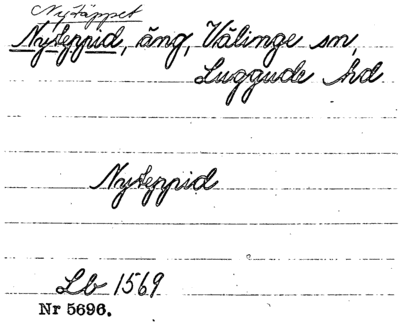 Nytäppet
Nyteppid, äng, Välinge sn,
Luggude hd
Nyteppid
Lb 1569
Nr 5696.